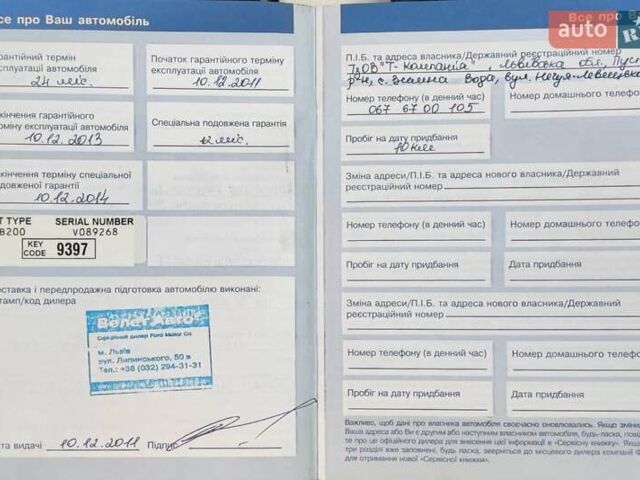 се про Ваш автомобіль
арантійний термін
сплуатації автомобіля
24 міс.
Початок гарантійного терміну
експлуатації автомобіля
10.12.2011
кінчення гарантійного
рміну експлуатації автомобіля
10.12.2013
Спеціальна подовжена гарантія
12 міс.
кінчення терміну спеціальної
довженої гарантії
10.12.2014
T TYPE SERIAL NUMBER
B200 V089268
KEY CODE 9397
оставка і передпродажна підготовка автомобілю виконані:
тамп/код дилера
Велет Авто
Офіційний дилер Ford Motor Co
м. Львів
вул. Липинського, 50 в
Тел.: +38 (032) 294-31-31
та видачі 10.12.2011 Підпис
Все про В
auto R
П.І.Б. та адреса власника/Державний реєстраційний номер
ТзОВ "Т-Компанія", Львівська обл., Пуст
р-н, с. Зимна Вода, вул. Нечуя-Левицьк
Номер телефону (в денний час)
067 67 00 105
Номер домашнього
Пробіг на дату придбання
10 км
Зміна адреси/П.І.Б. та адреса нового власника/Державний
реєстраційний номер
Номер телефону (в денний час)
Номер домашнього телефону
Пробіг на дату придбання
Дата придбання
Зміна адреси/П.І.Б. та адреса нового власника/Державний
реєстраційний номер
Номер телефону (в денний час)
Номер домашнього телефон
Пробіг на дату придбання
Дата придбання
Важливо, щоб дані про власника автомобіля своєчасно оновлювались. Якщо зміни
Ваша адреса або Ви є другим або наступним власником автомобіля, будь-ласка, пові
те про це офіційного дилера для внесення цієї інформації в «Сервісну книжку». Якщ
три розділи вже заповнені, будь ласка, зверніться до місцевого дилера компанії Ф
для отримання нової «Сервісної книжки».